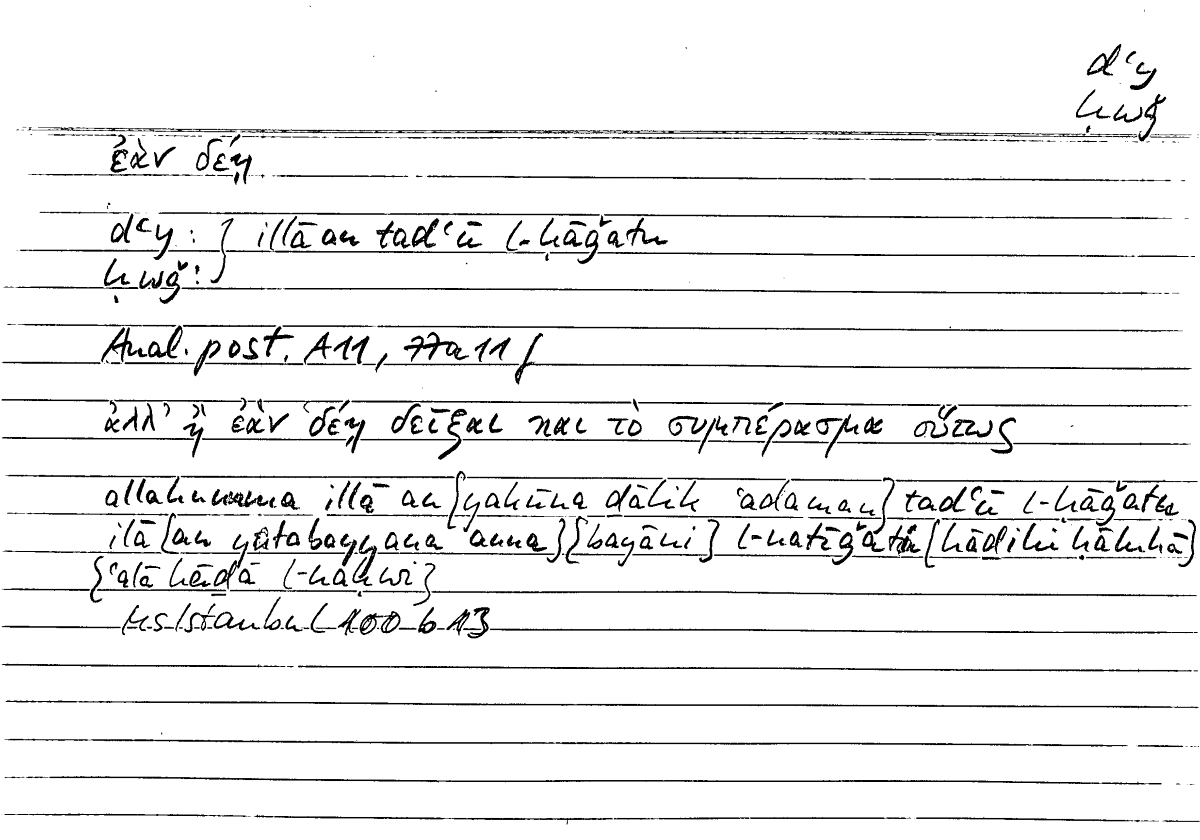 dʿy
ḥwǧ
ἐὰν δέῃ
dʿy : } illā an tadʿū l-ḥāǧatu
ḥwǧ :
Anal. post. A11, 77a11 f
ἀλλ' ἢ ἐὰν δέῃ δεῖξαι και τὸ συμπέρασμα οὕτως
allahumma illā an {yakūna dālik ʿadaman} tadʿū l-ḥāǧatu
ilā {an yatabayyana anna} {bayāni} l-natīǧati {hādihi ḥāluhā}
{ʿalā hādā l-naḥwi}
Ms Istanbul 100 b 13